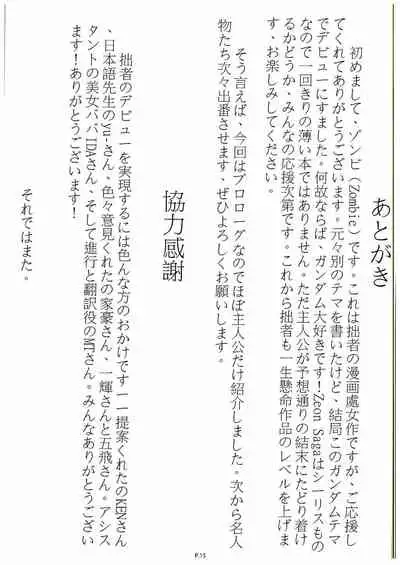 あとがき
初めまして、ゾンビ（Zombie）です。これは拙者の漫画處女作ですが、ご応援し
てくれてありがとうございます。元々別のテマを書いたけど、結局このガンダムテマ
でデビューにすました。何故ならば、ガンダム大好きです!Zeon Sagaはシーリスもの
なので一回きりの薄い本ではありません。ただ主人公が予想通りの結末にたどり着け
るかどうか、みんなの応援次第です。これから拙者も一生懸命作品のレベルを上げま
す、お楽しみしてください。
そう言えば、今回はプロローグなのでほぼ主人公だけ紹介しました。次から名人
物たち次々出番させます、ぜひよろしくお願いします。
協力感謝
拙者のデビューを実現するには色んな方のおかけです——提案くれたのKENさん
、日本語先生のyu-さん、色々意見くれたの家豪さん、一輝さんと五飛さん。アシス
タントの美女ババIDAさん、そして進行と翻訳役のMTさん。みんなありがとうござい
ます！ありがとうございます！
それではまた。
P.15